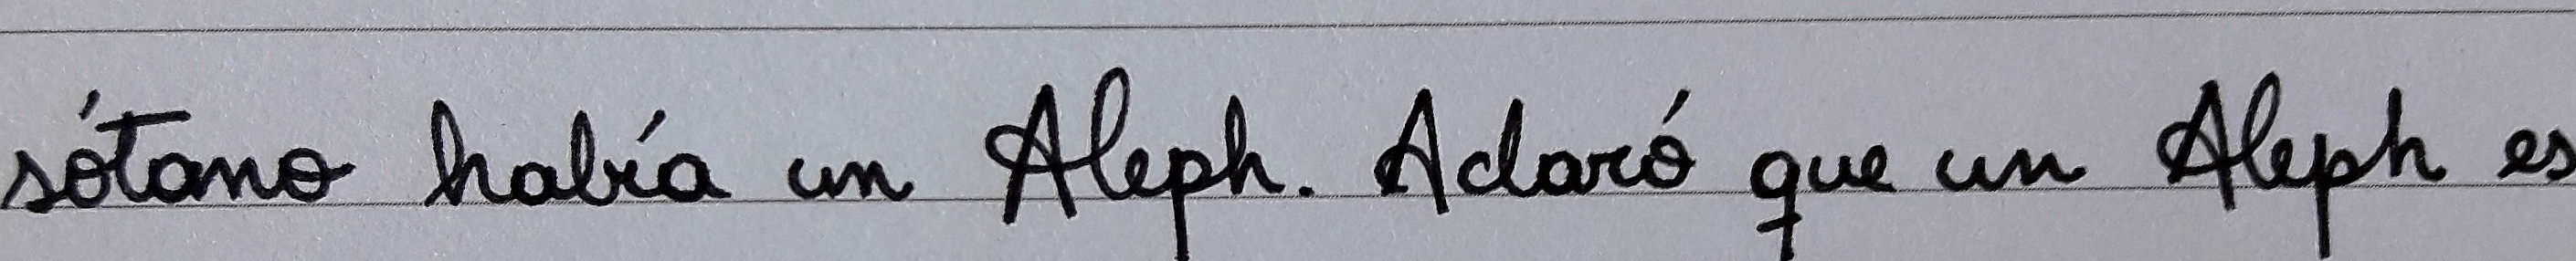 sótano había un Aleph. Aclaró que un Aleph es